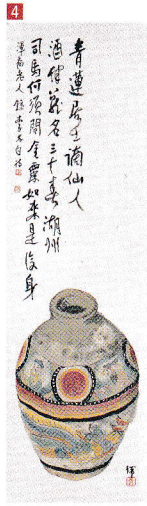 4
青蓮居士謫仙人
酒肆藏名三十春湖州
司馬何須問金粟如來是後身
老人錄李太白詩